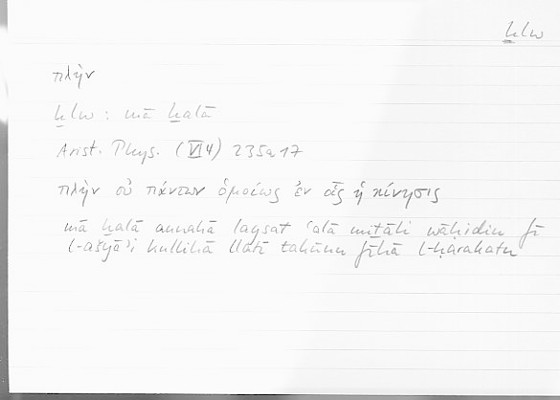 ḫlw
πλὴν
ḫlw : mā ḫalā
Arist. Phys. (VI 4) 235a17
πλὴν οὐ πάντων ὁμοίως ἐν οἷς ἡ κίνησις
mā ḫalā annahā laysat ʿalā miṯāli wāḥidin fī
l-ašyāʾi kullihā llatī takūnu fīhā l-ḥarakatu